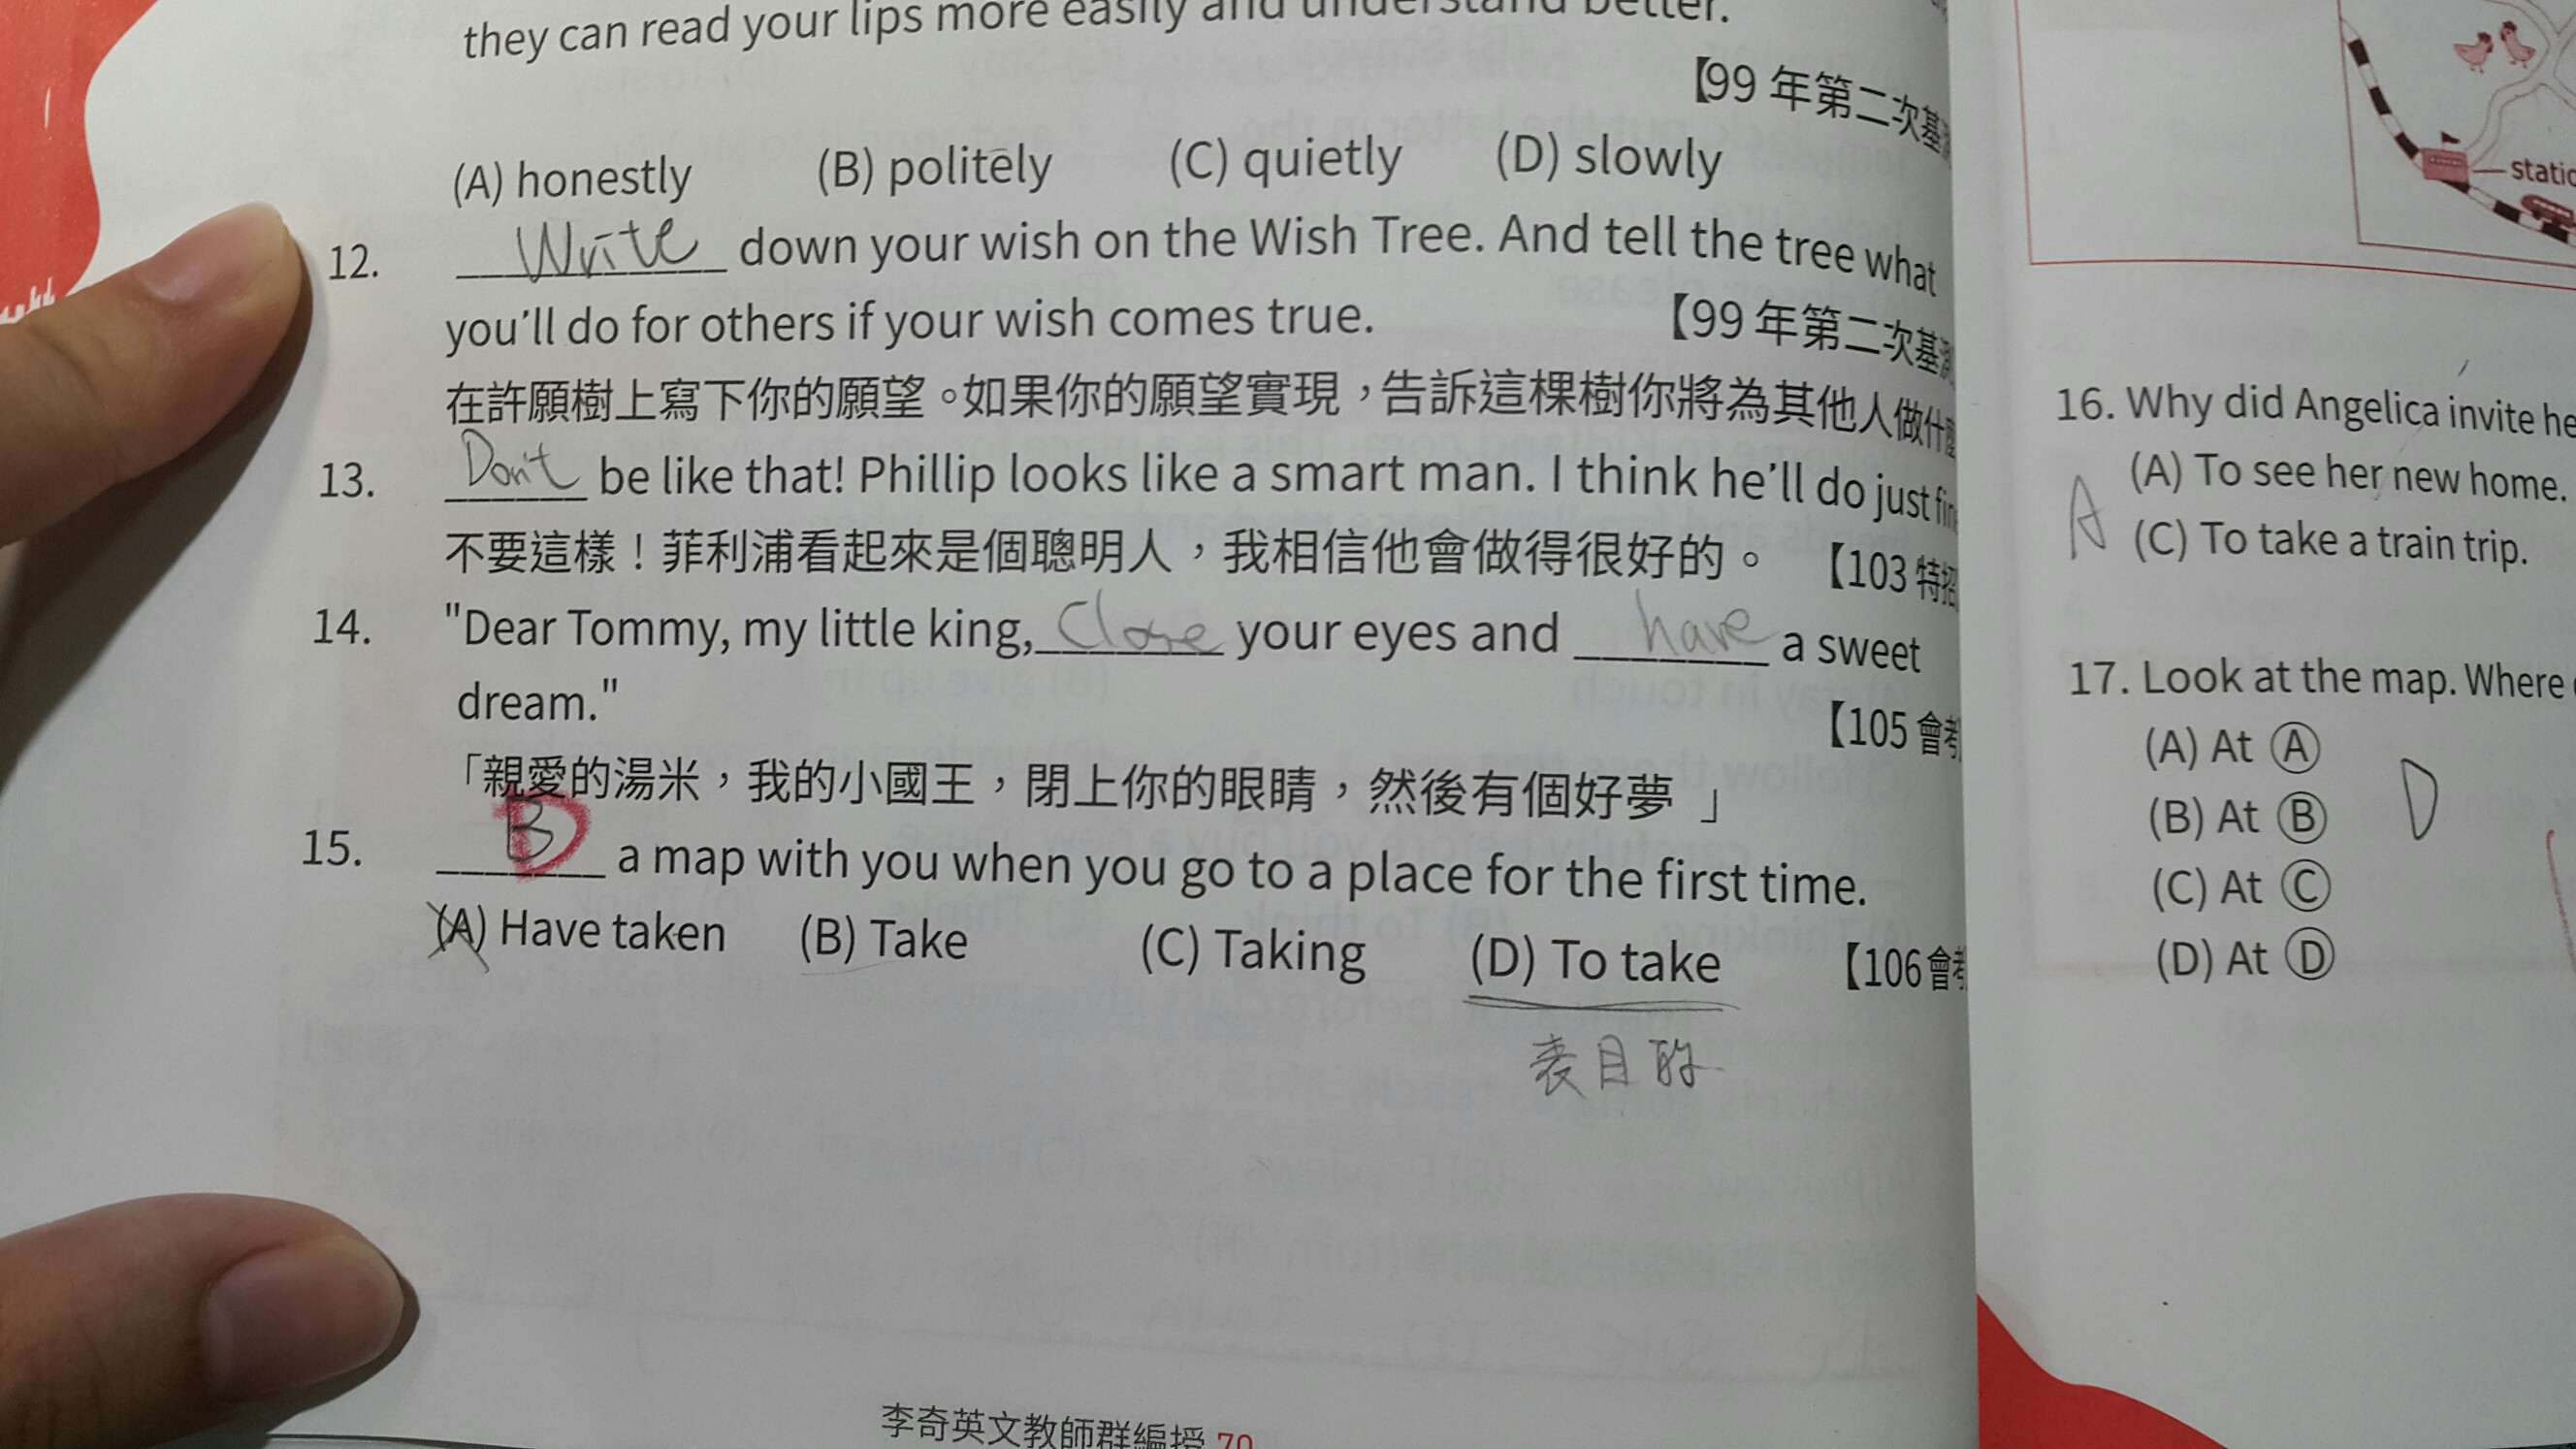 they can read your lips more easily and understand better.
【99 年第二次基測
(A) honestly (B) politely (C) quietly (D) slowly
12. Write down your wish on the Wish Tree. And tell the tree what
you'll do for others if your wish comes true. 【99 年第二次基測
在許願樹上寫下你的願望。如果你的願望實現，告訴這棵樹你將為其他人做什麼
13. Don't be like that! Phillip looks like a smart man. I think he'll do just fine
不要這樣！菲利浦看起來是個聰明人，我相信他會做得很好的。 【103 特招
14. "Dear Tommy, my little king, close your eyes and have a sweet
dream."
【105 會考
「親愛的湯米，我的小國王，閉上你的眼睛，然後有個好夢 」
15. B D a map with you when you go to a place for the first time.
(A) Have taken (B) Take (C) Taking (D) To take 【106 會考
表目的
李奇英文教師群編授 70
station
16. Why did Angelica invite he
(A) To see her new home.
A
(C) To take a train trip.
17. Look at the map. Where
(A) At Ⓐ
(B) At Ⓑ
D
(C) At Ⓒ
(D) At Ⓓ